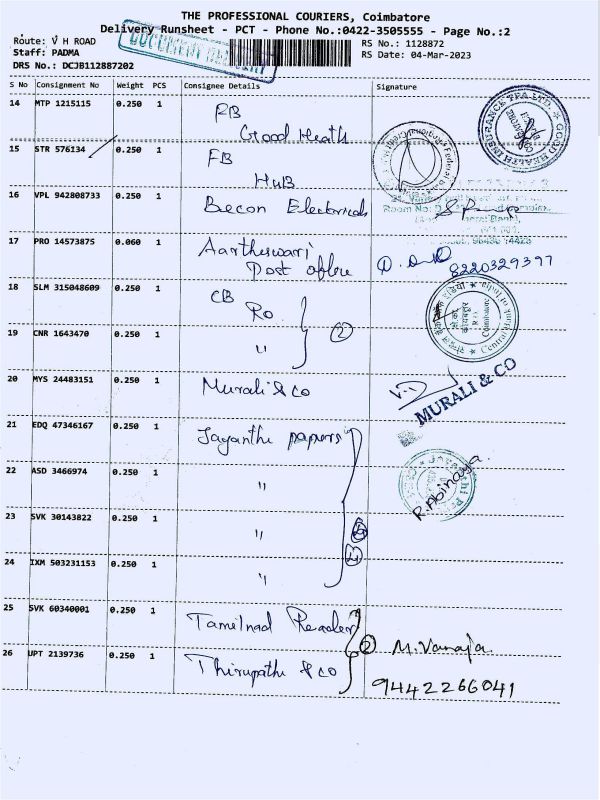 THE PROFESSIONAL COURIERS, Coimbatore
Delivery Runsheet - PCT - Phone No.:0422-3505555 - Page No.:2
Route: V H ROAD
Staff: PADMA
DRS No.: DCJB112887202
RS No.: 1128872
RS Date: 04-Mar-2023
S No Consignment No Weight PCS Consignee Details Signature
14 MTP 1215115 0.250 1 RB
Good Heath
15 STR 576134 0.250 1 FB
HUB
16 VPL 942808733 0.250 1 Becon Electricals
17 PRO 14573875 0.060 1 Aartheswari
Post office 8220329397
18 SLM 315048609 0.250 1 CB
RO
19 CNR 1643470 0.250 1 " 2
20 MYS 24483151 0.250 1 Murali & co
MURALI & CO
21 EDQ 47346167 0.250 1 Jayanthi papers
22 ASD 3466974 0.250 1 "
R.Abinaya
23 SVK 30143822 0.250 1 "
24 IXM 503231153 0.250 1 " 4
25 SVK 60340001 0.250 1 Tamilnad
2 M.Vanaja
26 UPT 2139736 0.250 1 Thirupathi & co
9442266041